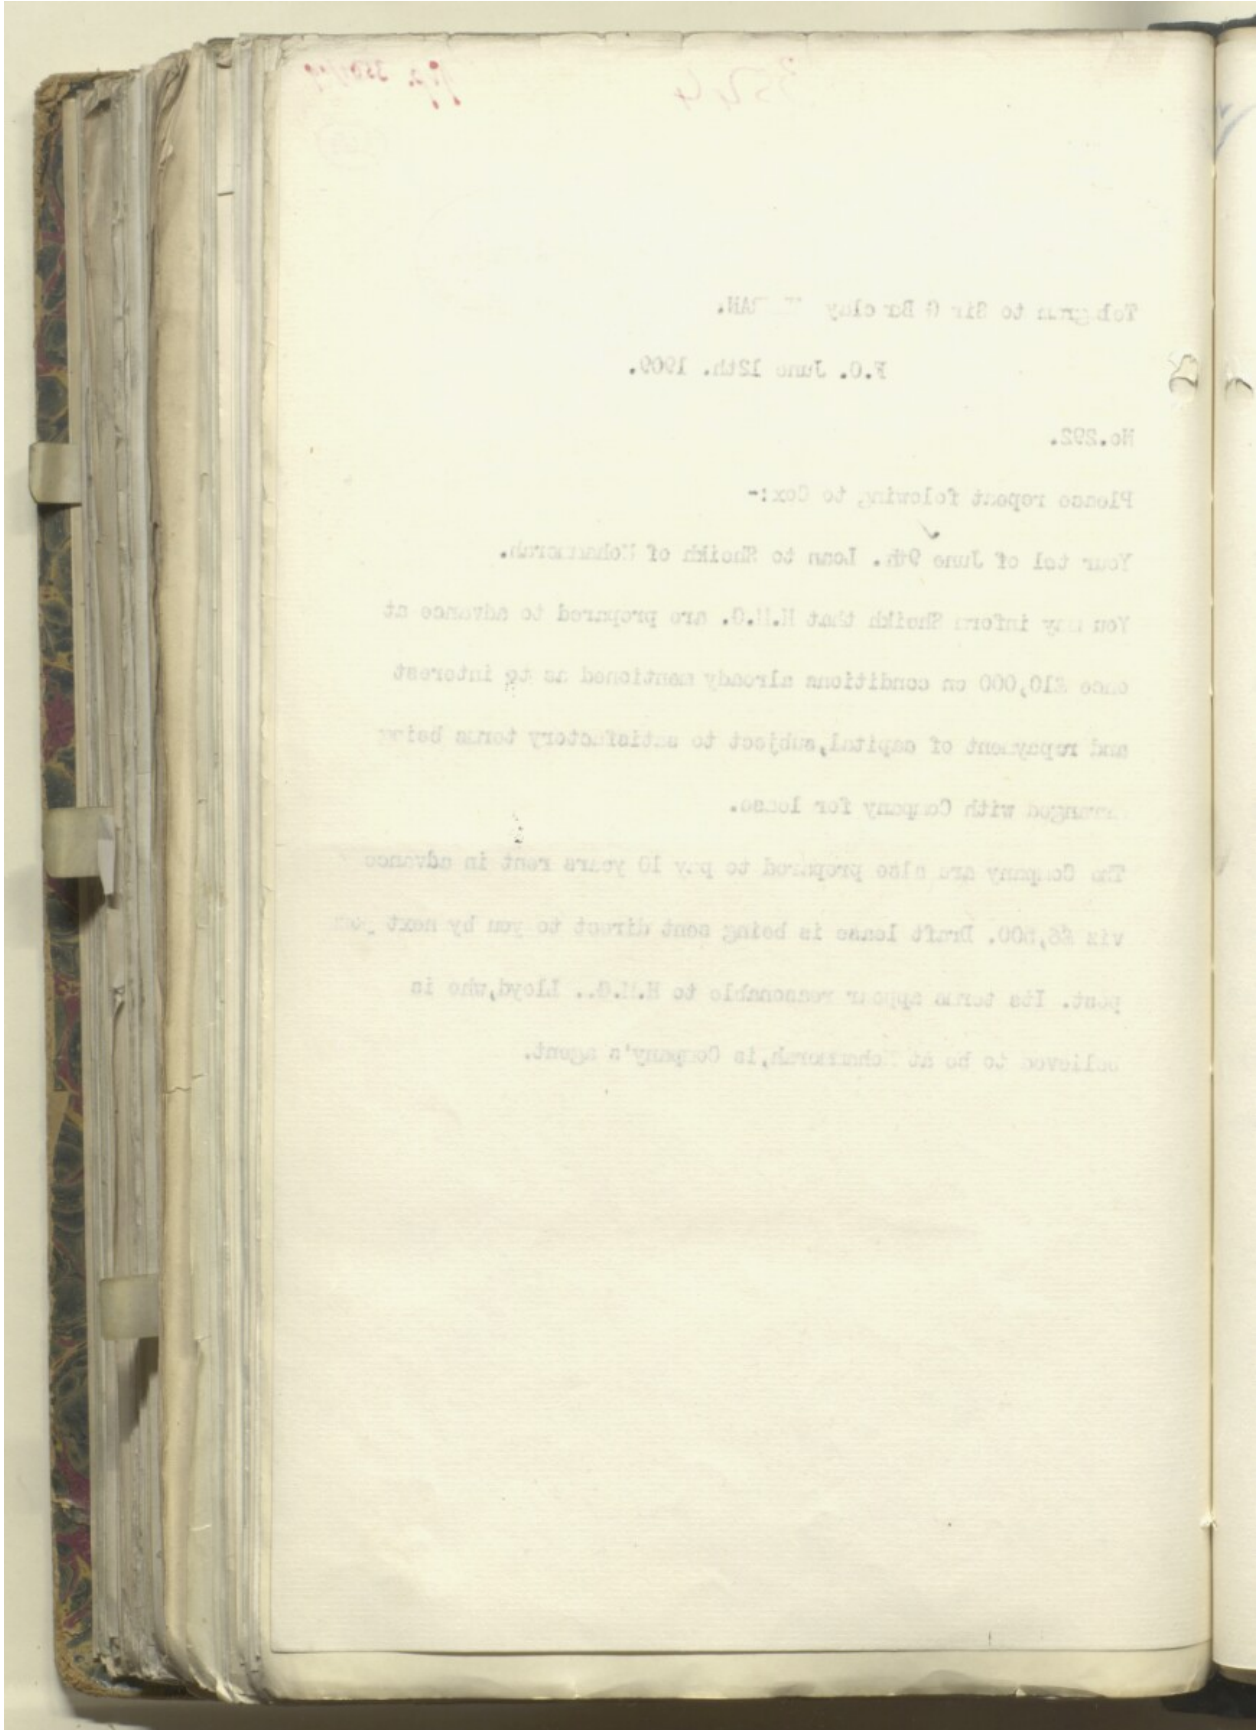 3524
Telegram to Sir G Barclay
F.O. June 12th. 1909.
No.292.
Please repeat following to Cox:-
Your tel of June 9th. Loan to Sheikh of Mohammerah.
You may inform Sheikh that H.M.G. are prepared to advance at
once £10,000 on conditions already mentioned as to interest
and repayment of capital,subject to satisfactory terms being
arranged with Company for lease.
The Company are also prepared to pay 10 years rent in advance
viz £6,500. Draft lease is being sent direct to you by next
post. Its terms appear reasonable to H.M.G.. Lloyd,who is
believed to be at Mohammerah,is Company's agent.